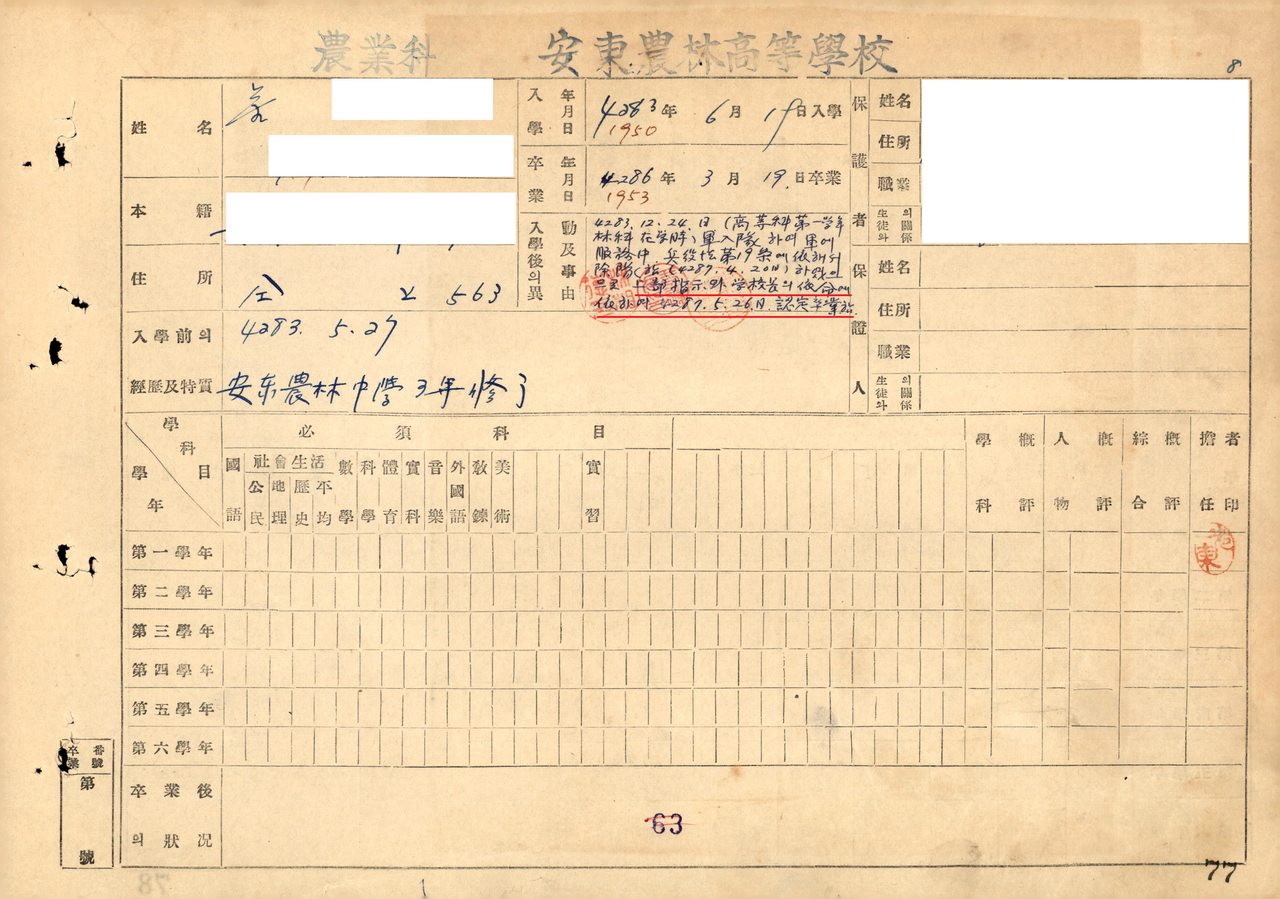 農業科 安東農林高等學校
8
姓名
入學 年月日 4283年 6月 19日 入學
1950
卒業 年月日 4286年 3月 19日 卒業
1953
本籍
入學後의異動及事由
4283.12.24.日 (高等科第一学年
林科 在学時) 軍入隊 하여 軍에
服務中 兵役法第19条에 依해서
除隊
4287.4.20日) 하였으
므로 上部指示와 学校長의
依하여 4287.5.26日. 認定卒業
住所
563
入學前의經歷及特質
4283. 5. 27
安东農林中学3年修了
保護者
姓名
住所
職業
生徒와의關係
保證人
姓名
住所
職業
生徒와의關係
學科目
學年
必須科目
國語
社會生活
公民
地理
歷史
平均
數學
科學
體育
實科
音樂
外國語
敎鍊
美術
實習
學科槪評
人物槪評
綜合槪評
擔任者印
第一學年
第二學年
第三學年
第四學年
第五學年
第六學年
卒業後의狀況
卒業番號
第 號
63
77
78